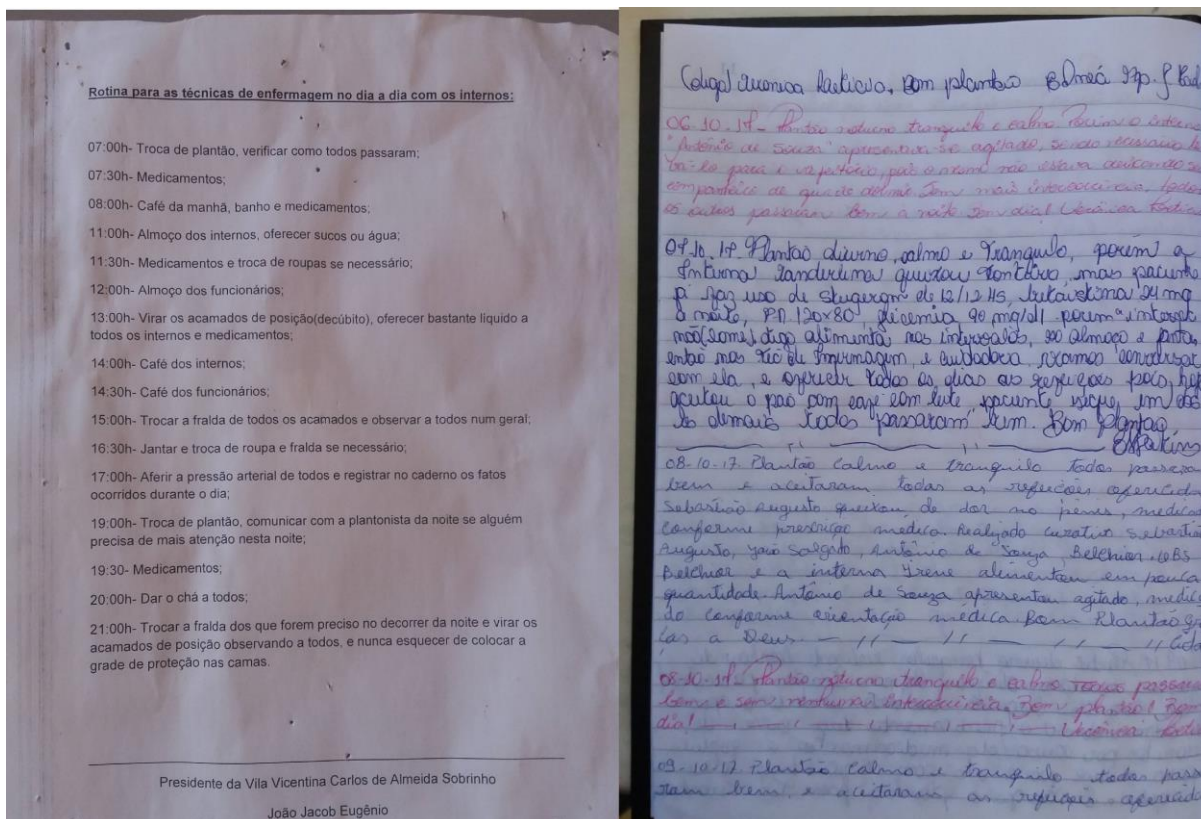 Rotina para as técnicas de enfermagem no dia a dia com os internos:
07:00h- Troca de plantão, verificar como todos passaram;
07:30h- Medicamentos;
08:00h- Café da manhã, banho e medicamentos;
11:00h- Almoço dos internos, oferecer sucos ou água;
11:30h- Medicamentos e troca de roupas se necessário;
12:00h- Almoço dos funcionários;
13:00h- Virar os acamados de posição(decúbito), oferecer bastante liquido a
todos os internos e medicamentos;
14:00h- Café dos internos;
14:30h- Café dos funcionários;
15:00h- Trocar a fralda de todos os acamados e observar a todos num geral;
16:30h- Jantar e troca de roupa e fralda se necessário;
17:00h- Aferir a pressão arterial de todos e registrar no caderno os fatos
ocorridos durante o dia;
19:00h- Troca de plantão, comunicar com a plantonista da noite se alguém
precisa de mais atenção nesta noite;
19:30- Medicamentos;
20:00h- Dar o chá a todos;
21:00h- Trocar a fralda dos que forem preciso no decorrer da noite e virar os
acamados de posição observando a todos, e nunca esquecer de colocar a
grade de proteção nas camas.
Presidente da Vila Vicentina Carlos de Almeida Sobrinho
João Jacob Eugênio
Bom plantão
06.10.17- Plantão noturno tranquilo e calmo. Porém o interno
"Antônio de Souza" apresentou-se agitado, sendo necessário
para o pois o mesmo não estava deixando
de quarto dormir. Sem mais
os outros passaram bem a noite. Bom dia!
07.10.17. Plantão diurno, calmo e tranquilo, porém a
Interna queixou mas paciente
já faz uso de de 12/12 Hs, 24 mg
à noite, PA 120x80, glicemia 90 mg/dl porém a
não digo alimenta nos intervalos, só almoço e janta,
então nas Téc de Enfermagem, e cuidadora vamos conversar
com ela, e oferecer todos os dias as refeições pois, hoje
aceitou o pão com café com leite, paciente segue em
Os demais todos passaram bem. Bom Plantão
08-10-17. Plantão calmo e tranquilo todos
bem e aceitaram todas as refeições
Sebastião Augusto queixou de dor no penes,
conforme prescrição medica. Realizado curativo
Augusto, Salgado, Antônio de Souza, Belchior. OBS
Belchior e a interna Irene alimentam em pouca
quantidade. Antônio de Souza apresentou agitado,
do conforme orientação médica. Bom Plantão
ças a Deus.
08-10-17. Plantão noturno tranquilo e calmo todos
bem e sem nenhuma Bom plantão! Bom
dia!
09-10-17. Plantão calmo e tranquilo todos
ram bem e aceitaram as refeições